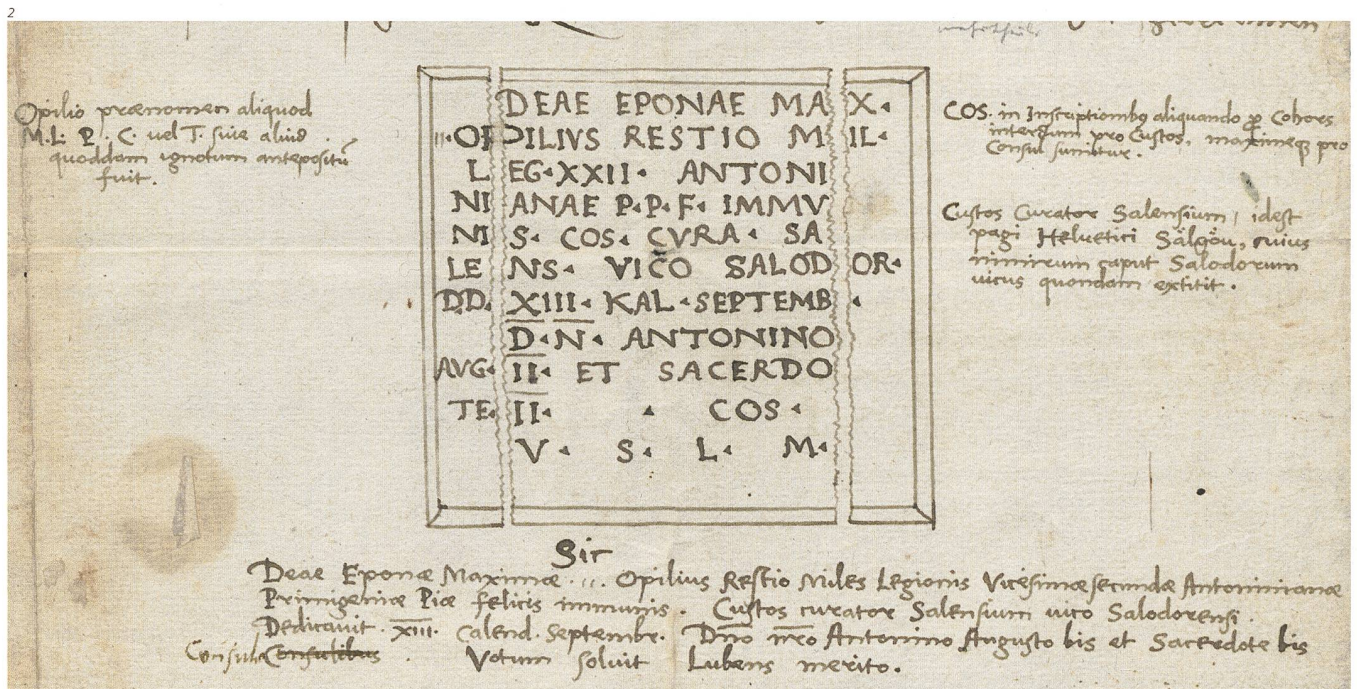 2
Opilio prænomen aliquod
M. L. P. C. uel T. siue aliud
quoddam ignotum antepositū
fuit.
DEAE EPONAE MA X.
OPILIVS RESTIO M IL.
L EG. XXII. ANTONI
NI ANAE P. P. F. IMMV
NI S. COS. CVRA. SA
LE NS. VICO SALOD OR.
D.D. XIII. KAL. SEPTEMB.
D. N. ANTONINO
AVG. II. ET SACERDO
TE. II. COS.
V. S. L. M.
COS. in Inscriptionibq aliquando ꝓ Cohors
interdum pro Custos, maximeqꝫ pro
Consul sumitur.
Custos Curator Salensium, idest
pagi Heluetici Sälgöu, cuius
nimirum caput Salodorum
uicus quondam extitit.
Sic
Deae Eponæ Maximæ ... Opilius Restio Miles Legionis Vicesimæsecundæ Antoninianæ
Primigeniæ Piæ felicis immunis. Custos curator Salensium uico Salodorensi.
Dedicauit. XIII. Calend. Septembr. Dno nro Antonino Augusto bis et Sacerdote bis
Consulibus Votum soluit Lubens merito.